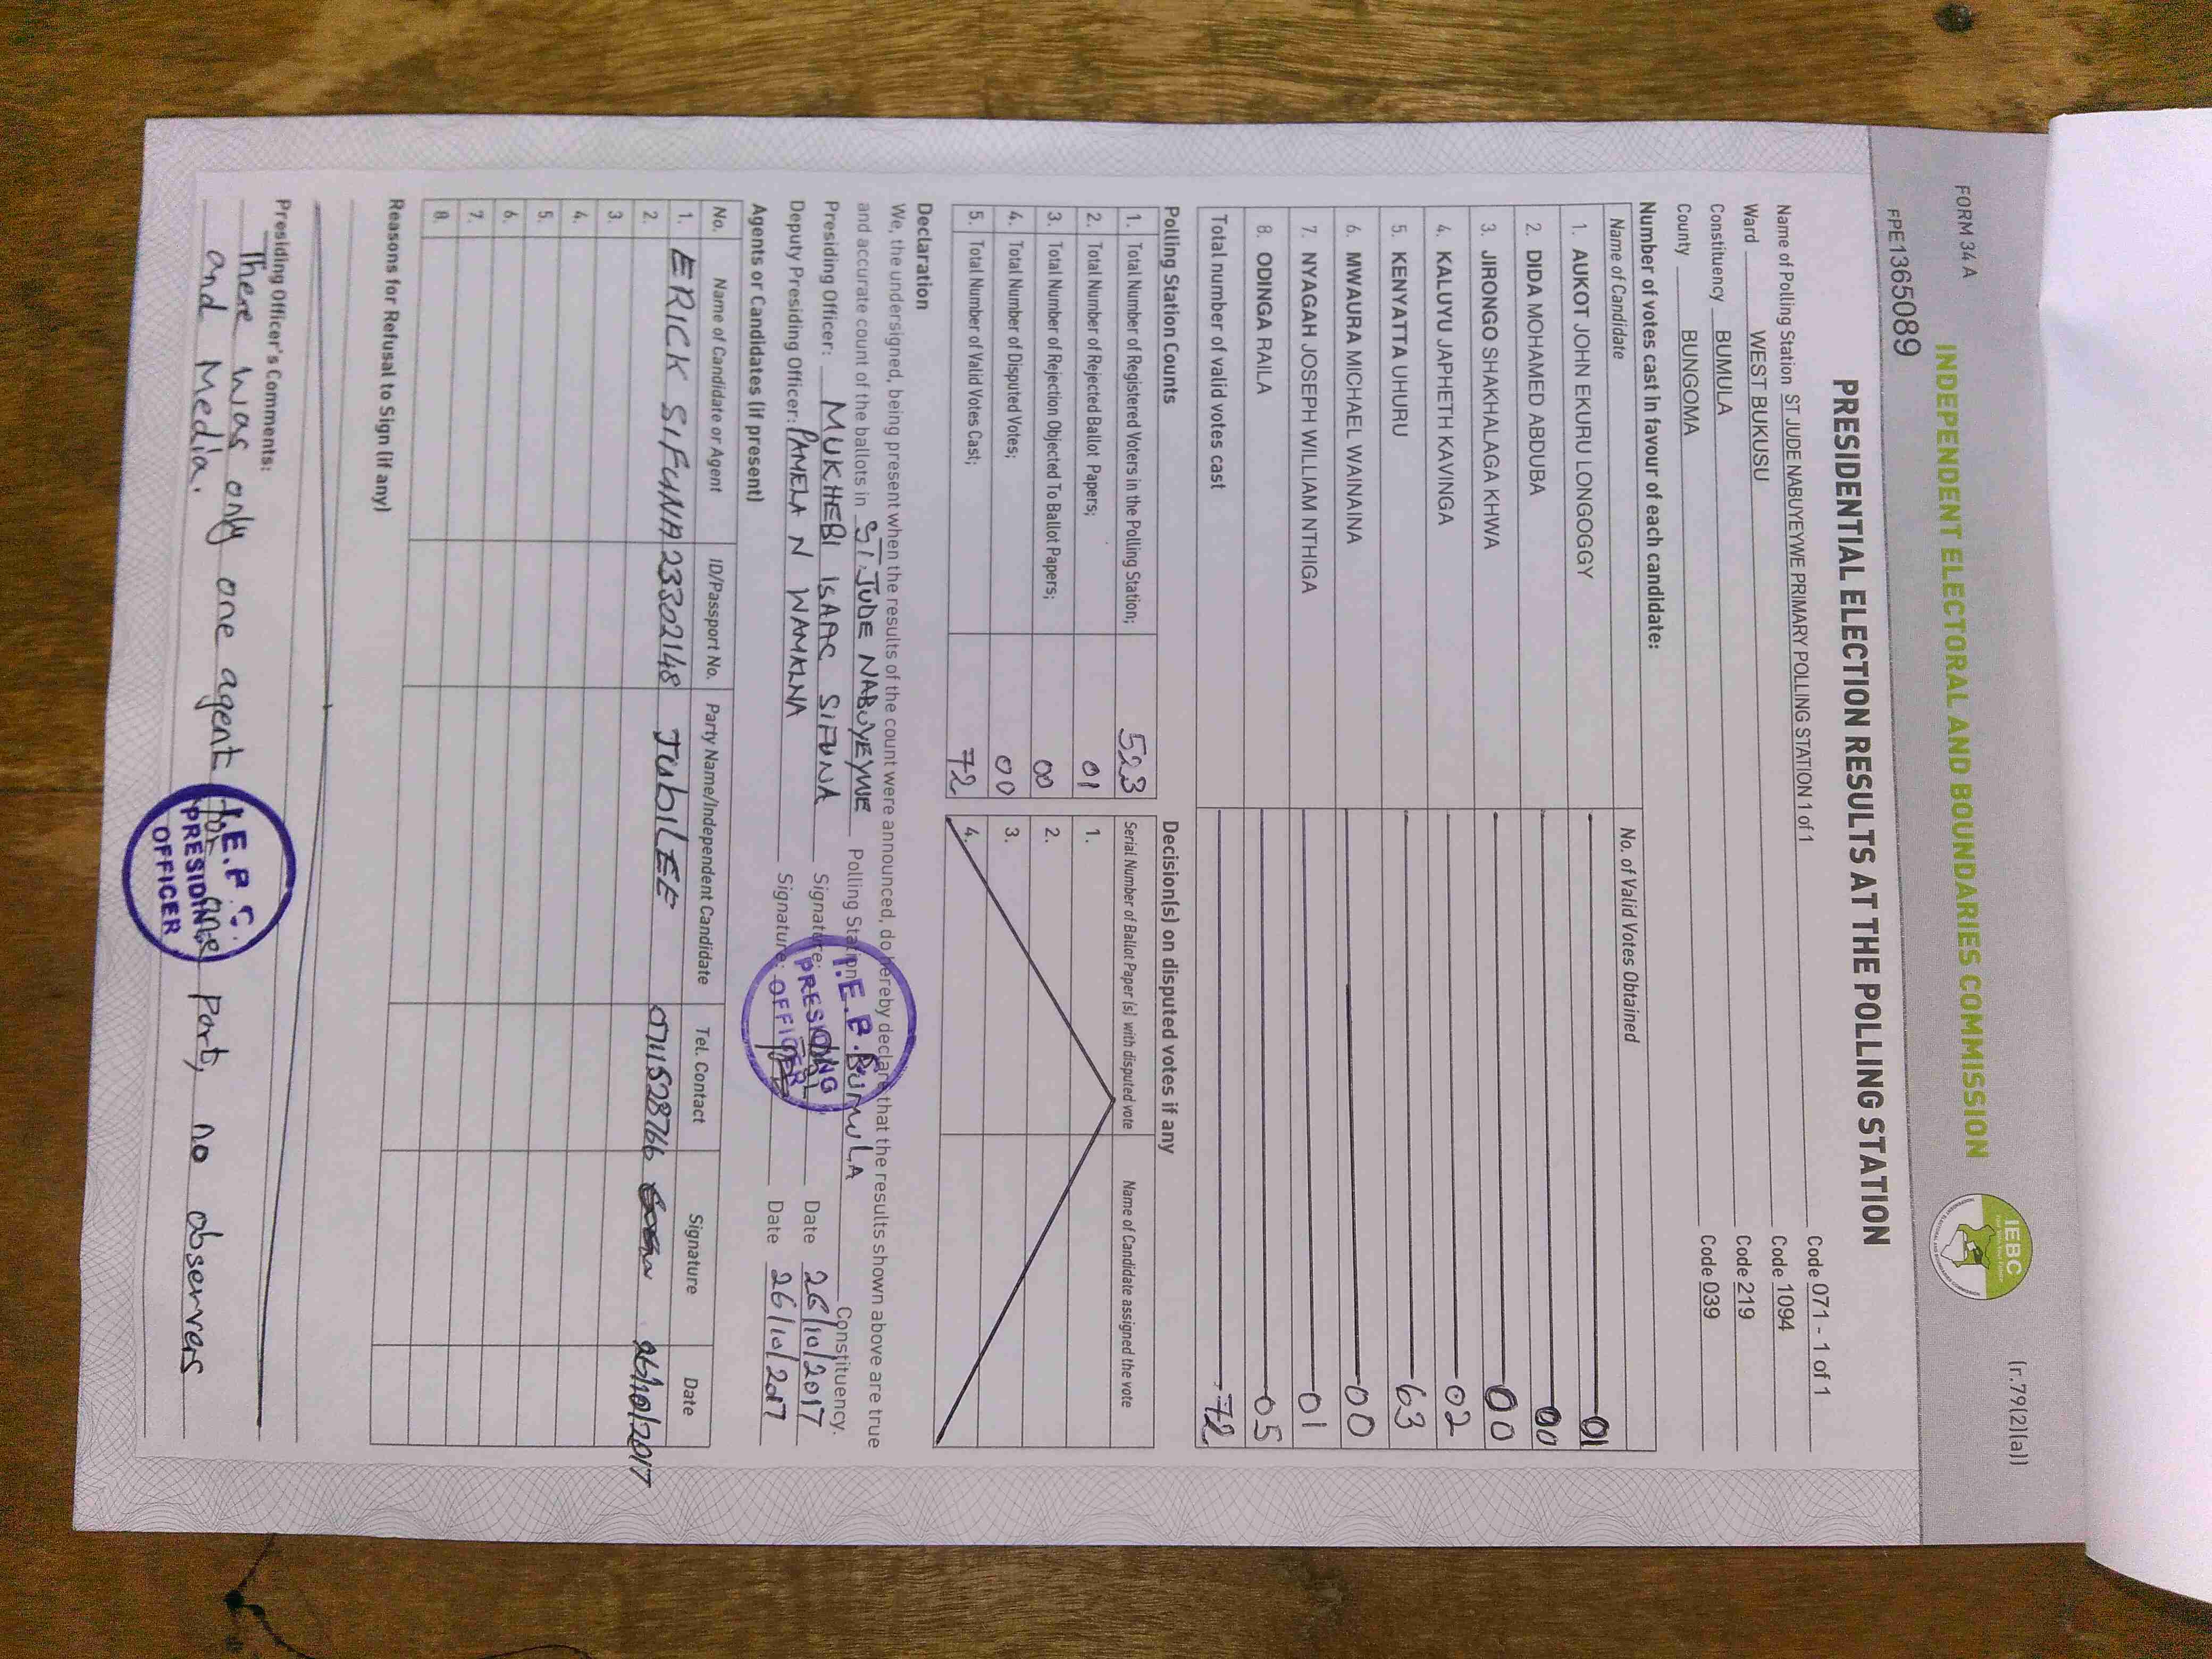 FORM 34 A
(r.79(2)(a))
INDEPENDENT ELECTORAL AND BOUNDARIES COMMISSION
IEBC
FPE1365089
PRESIDENTIAL ELECTION RESULTS AT THE POLLING STATION
Name of Polling Station ST JUDE NABUYEYWE PRIMARY POLLING STATION 1 of 1 Code 071 - 1 of 1
Ward WEST BUKUSU Code 1094
Constituency BUMULA Code 219
County BUNGOMA Code 039
Number of votes cast in favour of each candidate:
Name of Candidate No. of Valid Votes Obtained
1. AUKOT JOHN EKURU LONGOGGY 01
2. DIDA MOHAMED ABDUBA 00
3. JIRONGO SHAKHALAGA KHWA 00
4. KALUYU JAPHETH KAVINGA 02
5. KENYATTA UHURU 63
6. MWAURA MICHAEL WAINAINA 00
7. NYAGAH JOSEPH WILLIAM NTHIGA 01
8. ODINGA RAILA 05
Total number of valid votes cast 72
Polling Station Counts
1. Total Number of Registered Voters in the Polling Station; 523
2. Total Number of Rejected Ballot Papers; 01
3. Total Number of Rejection Objected To Ballot Papers; 00
4. Total Number of Disputed Votes; 00
5. Total Number of Valid Votes Cast; 72
Decision(s) on disputed votes if any
Serial Number of Ballot Paper (s) with disputed vote Name of Candidate assigned the vote
1.
2.
3.
4.
Declaration
We, the undersigned, being present when the results of the count were announced, do hereby declare that the results shown above are true
and accurate count of the ballots in ST. JUDE NABUYEYWE Polling Station BUMULA Constituency.
Presiding Officer: MUKHEBI ISAAC SIFUNA Signature: Date 26/10/2017
Deputy Presiding Officer: PAMELA N WAMALWA Signature: Date 26/10/2017
I.E.B.C.
PRESIDING
OFFICER
Agents or Candidates (if present)
No. Name of Candidate or Agent ID/Passport No. Party Name/Independent Candidate Tel. Contact Signature Date
1. ERICK SIFUNA 23302148 JUbiLEE 0711528766 26/10/2017
2.
3.
4.
5.
6.
7.
8.
Reasons for Refusal to Sign (if any)
Presiding Officer's Comments:
There was only one agent for one part, no observers
and Media.
I.E.B.C.
PRESIDING
OFFICER